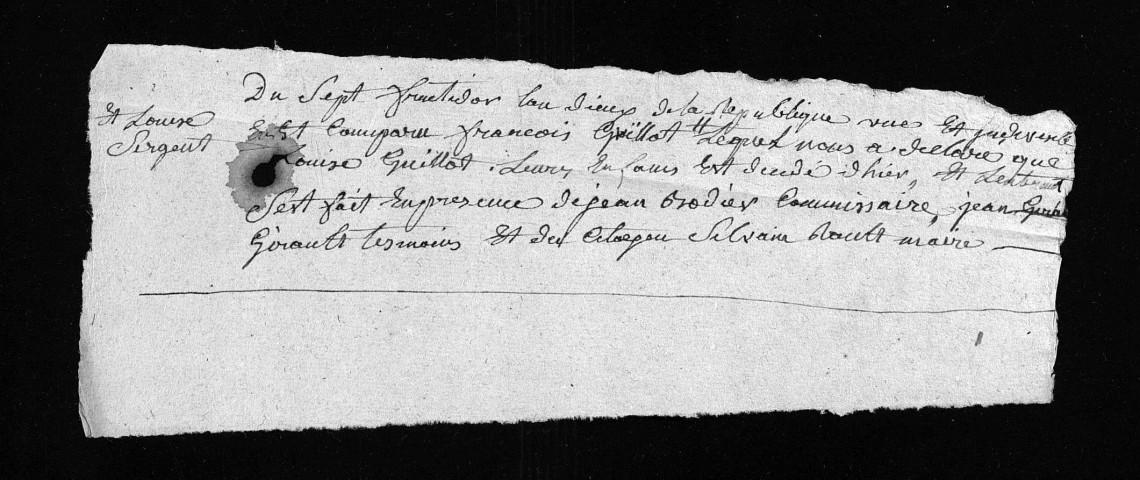 Du Sept fructidor lan dieux de la Republique une Et jndivisible
Et Louise
Sergent
Est Comparu francois Guillot " Lequel nous a declare que
Louise Guillot . Leur Enfans Est decedé d'hier, Et Lenterment
Sest fait En presence de jean Brodier Commissaire, jean
Girault tesmoins Et du Citoyen Silvain Rault maire